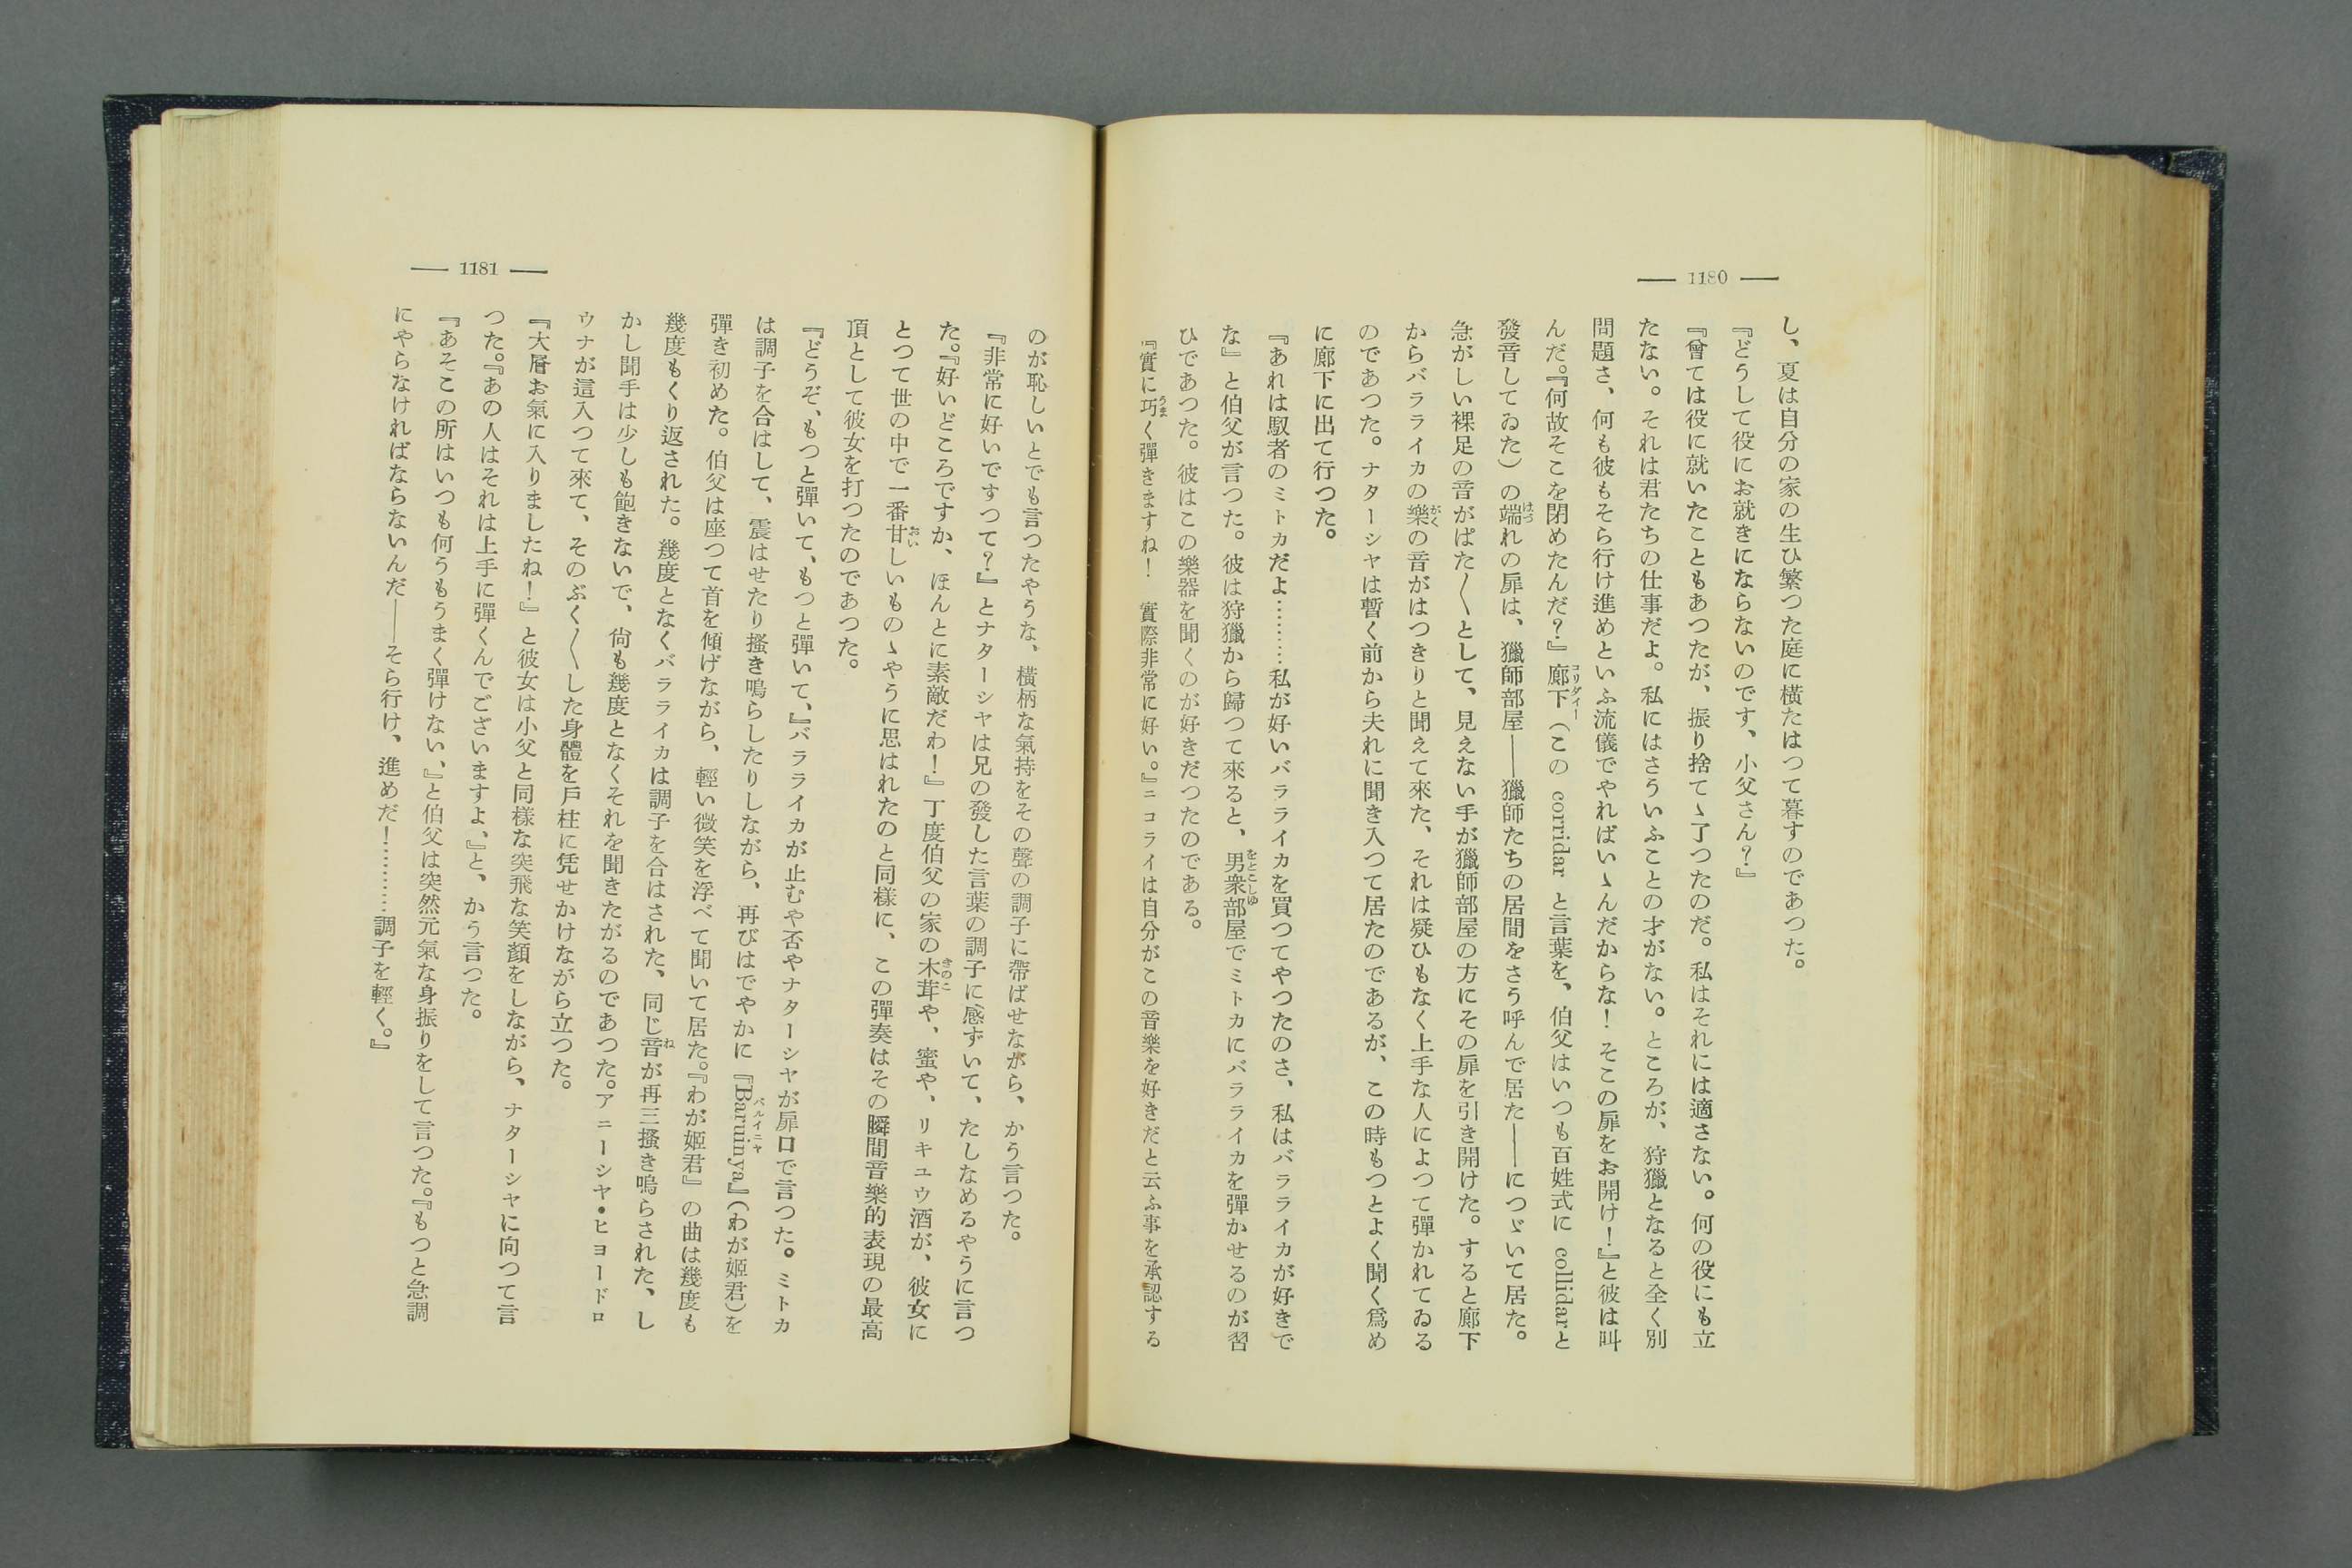 — 1180 —
し、夏は自分の家の生ひ繁つた庭に横たはつて暮すのであつた。
『どうして役にお就きにならないのです、小父さん？』
『曾ては役に就いたこともあつたが、振り捨てゝ了つたのだ。私はそれには適さない。何の役にも立
たない。それは君たちの仕事だよ。私にはさういふことの才がない。ところが、狩獵となると全く別
問題さ、何も彼もそら行け進めといふ流儀でやればいゝんだからな！そこの扉をお開け！』と彼は叫
んだ。『何故そこを閉めたんだ？』廊下（この corridar と言葉を、伯父はいつも百姓式に collidarと
發音してゐた）の端れの扉は、獵師部屋——獵師たちの居間をさう呼んで居た——につゞいて居た。
急がしい裸足の音がぱた〳〵として、見えない手が獵師部屋の方にその扉を引き開けた。すると廊下
からバラライカの樂の音がはつきりと聞えて來た、それは疑ひもなく上手な人によつて彈かれてゐる
のであつた。ナターシヤは暫く前から夫れに聞き入つて居たのであるが、この時もつとよく聞く爲め
に廊下に出て行つた。
『あれは馭者のミトカだよ………私が好いバラライカを買つてやつたのさ、私はバラライカが好きで
な』と伯父が言つた。彼は狩獵から歸つて來ると、男衆部屋でミトカにバラライカを彈かせるのが習
ひであつた。彼はこの樂器を聞くのが好きだつたのである。
『實に巧く彈きますね！　實際非常に好い。』ニコライは自分がこの音樂を好きだと云ふ事を承認する
— 1181 —
のが恥しいとでも言つたやうな、橫柄な氣持をその聲の調子に帶ばせながら、かう言つた。
『非常に好いですつて？』とナターシヤは兄の發した言葉の調子に感ずいて、たしなめるやうに言つ
た。『好いどころですか、ほんとに素敵だわ！』丁度伯父の家の木茸や、蜜や、リキユウ酒が、彼女に
とつて世の中で一番甘しいものゝやうに思はれたのと同樣に、この彈奏はその瞬間音樂的表現の最高
頂として彼女を打つたのであつた。
『どうぞ、もつと彈いて、もつと彈いて、』バラライカが止むや否やナターシヤが扉口で言つた。ミトカ
は調子を合はして、震はせたり搔き鳴らしたりしながら、再びはでやかに『Baruinya』（わが姬君）を
彈き初めた。伯父は座つて首を傾げながら、輕い微笑を浮べて聞いて居た。『わが姬君』の曲は幾度も
幾度もくり返された。幾度となくバラライカは調子を合はされた、同じ音が再三搔き鳴らされた、し
かし聞手は少しも飽きないで、尙も幾度となくそれを聞きたがるのであつた。アニーシヤ・ヒヨードロ
ウナが這入つて來て、そのぶく〳〵した身體を戶柱に凭せかけながら立つた。
『大層お氣に入りましたね！』と彼女は小父と同樣な突飛な笑顏をしながら、ナターシヤに向つて言
つた。『あの人はそれは上手に彈くんでございますよ、』と、かう言つた。
『あそこの所はいつも何うもうまく彈けない、』と伯父は突然元氣な身振りをして言つた。『もつと急調
にやらなければならないんだ——そら行け、進めだ！………調子を輕く。』